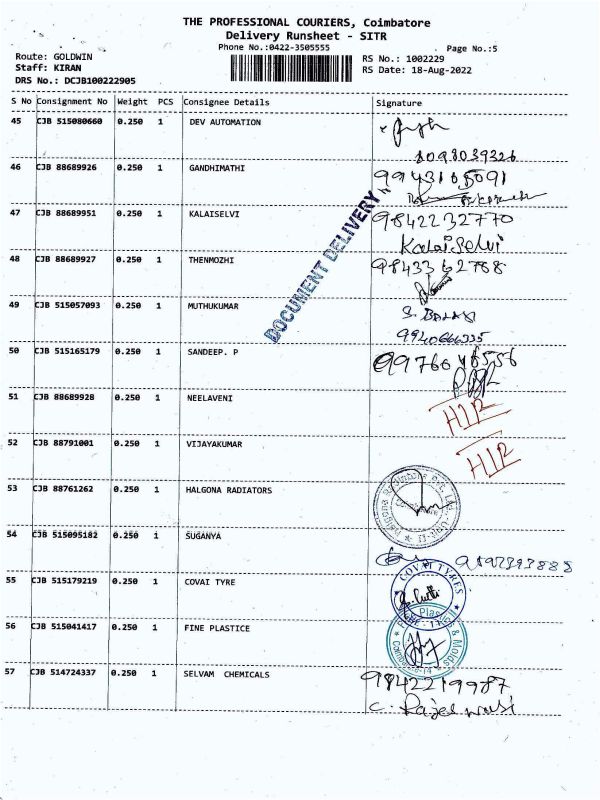 THE PROFESSIONAL COURIERS, Coimbatore
Delivery Runsheet - SITR
Phone No.:0422-3505555
Page No.:5
Route: GOLDWIN
RS No.: 1002229
Staff: KIRAN
RS Date: 18-Aug-2022
DRS No.: DCJB100222905
S No Consignment No Weight PCS Consignee Details Signature
45 CJB 515080660 0.250 1 DEV AUTOMATION
8098039326
46 CJB 88689926 0.250 1 GANDHIMATHI
9943105091
47 CJB 88689951 0.250 1 KALAISELVI 9842232770
Kalaiselvi
48 CJB 88689927 0.250 1 THENMOZHI 9843362768
DOCUMENT DELIVERY
49 CJB 515057093 0.250 1 MUTHUKUMAR S. BALAJI
9940666335
50 CJB 515165179 0.250 1 SANDEEP. P
51 CJB 88689928 0.250 1 NEELAVENI HIR
52 CJB 88791001 0.250 1 VIJAYAKUMAR HIR
53 CJB 88761262 0.250 1 HALGONA RADIATORS
54 CJB 515095182 0.250 1 SUGANYA
55 CJB 515179219 0.250 1 COVAI TYRE
COVAI TYRES
56 CJB 515041417 0.250 1 FINE PLASTICE
57 CJB 514724337 0.250 1 SELVAM CHEMICALS 9842219987
C. Rajeswari